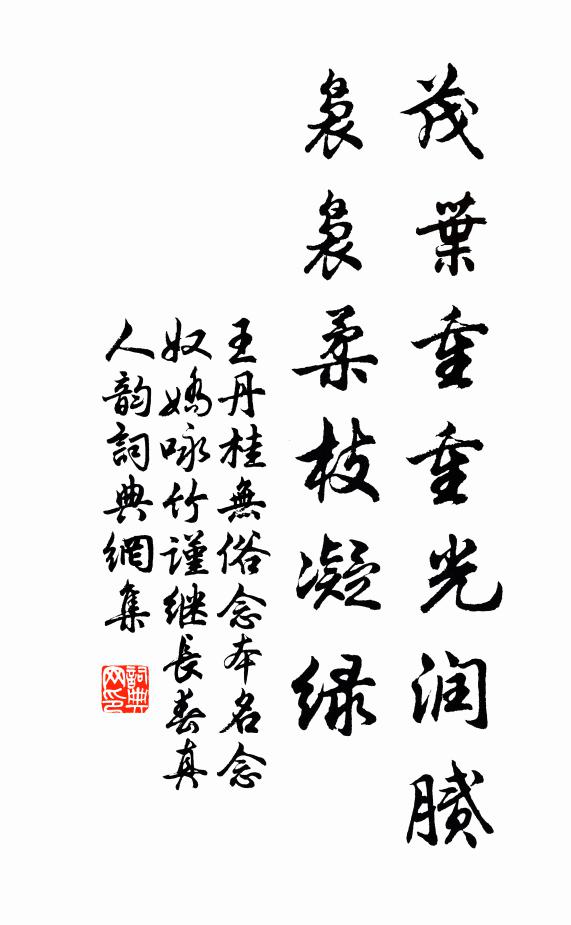 茂葉重重光润膩
袅袅柔枝凝绿
王丹桂無俗念本名念
奴嬌咏竹謹继長春真
人韵詞典網集
詞典网印